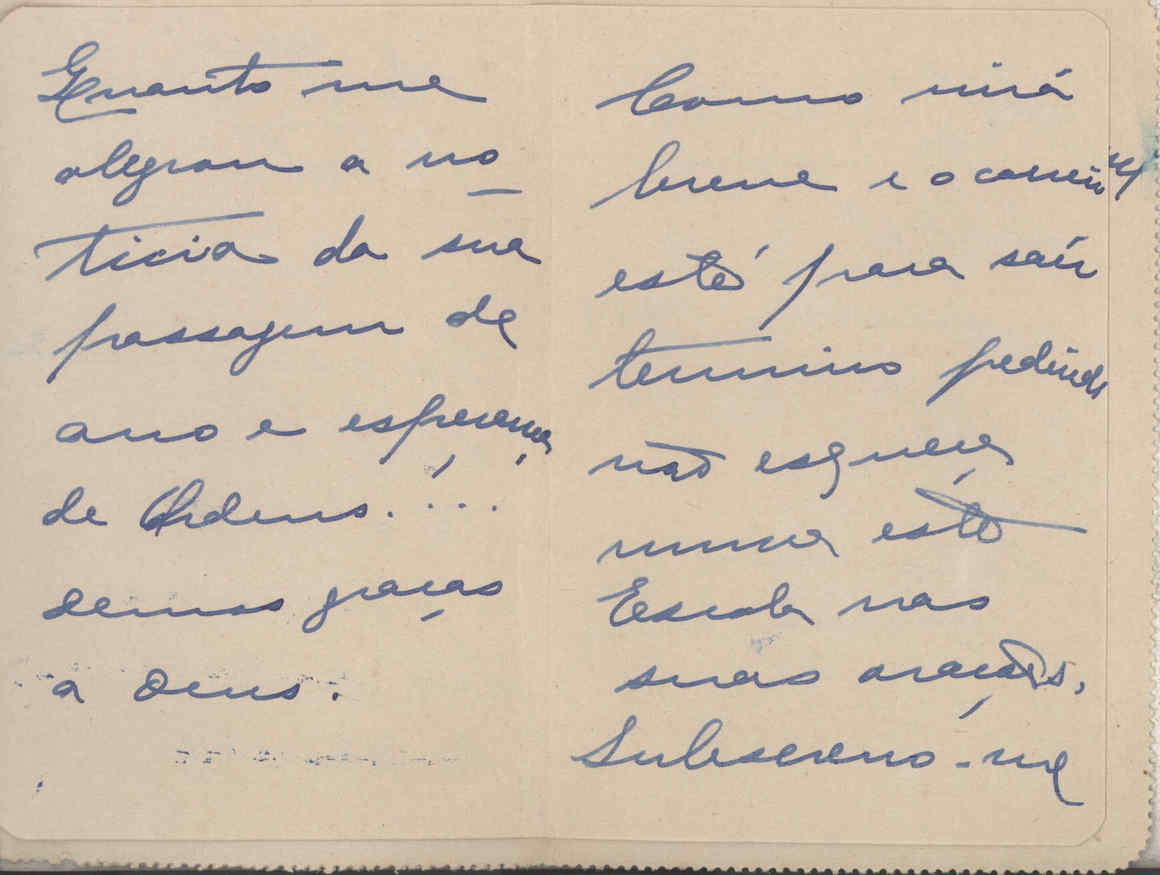 Quanto me
alegrou a no
ticia da sua
passagem de
ano e esperança
de Ordens....
demos graças
a Deus.
Como virá
breve e o correio
está para saír
termino pedindo
não esqueça
nunca esta
Escola nas
suas orações.
Subscrevo-me